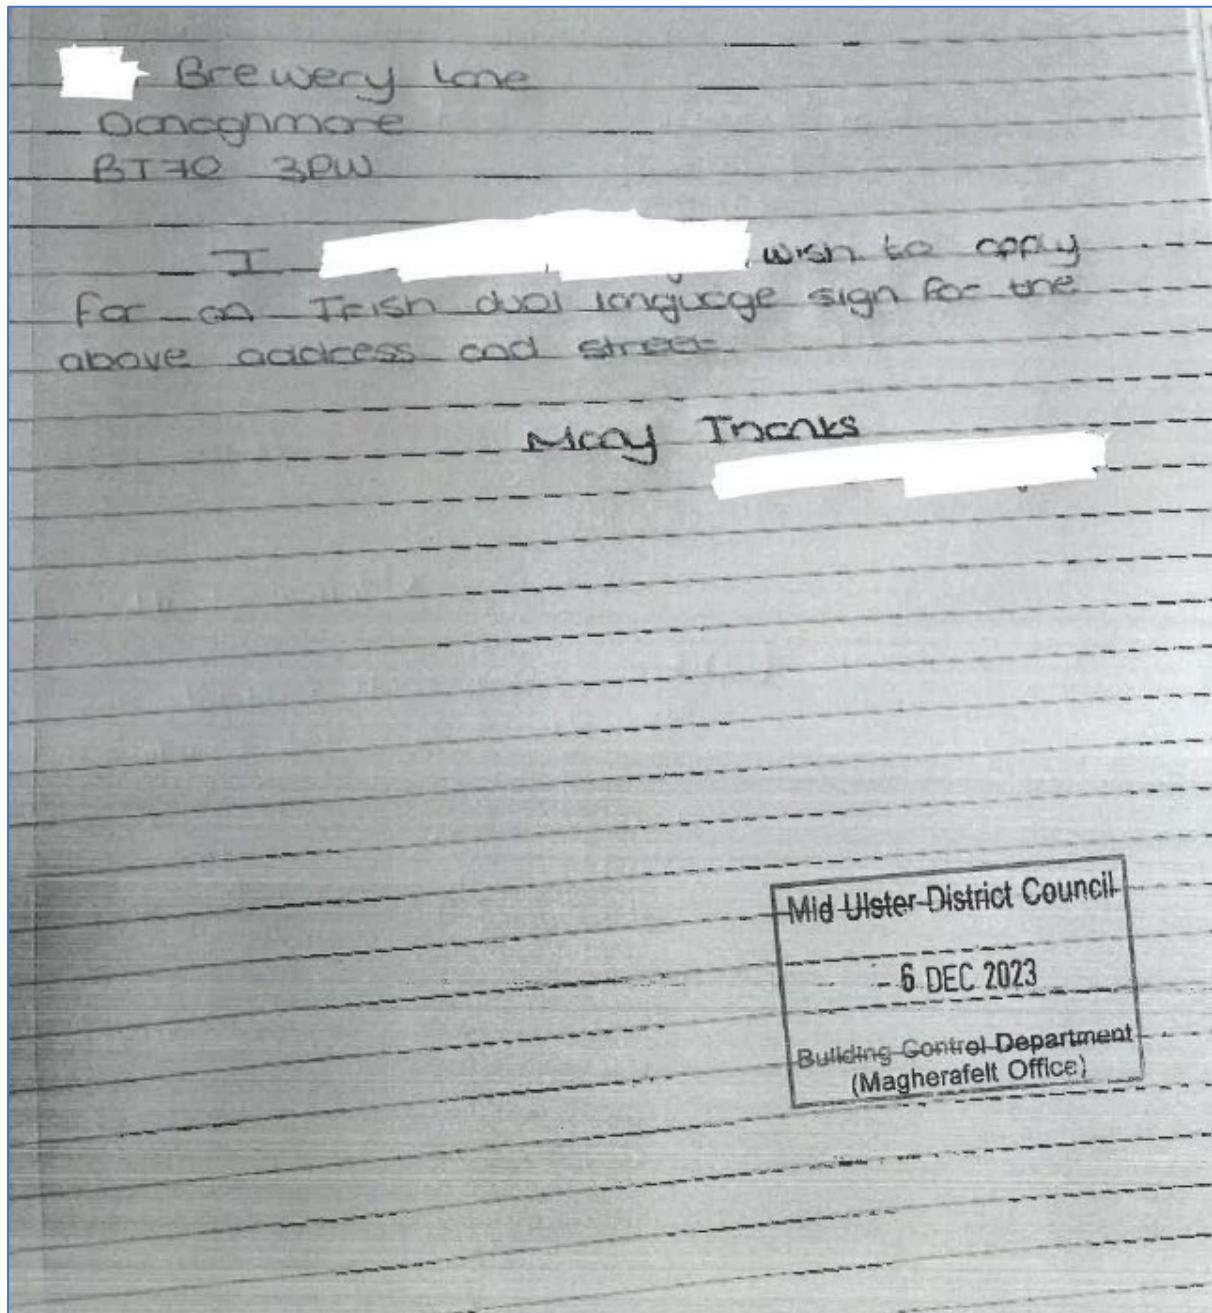 Brewery Lane
Donaghmore
BT70 3PW
I wish to apply
for an Irish dual language sign for the
above address and street.
Many Thanks
Mid Ulster District Council
- 6 DEC 2023
Building Control Department
(Magherafelt Office)